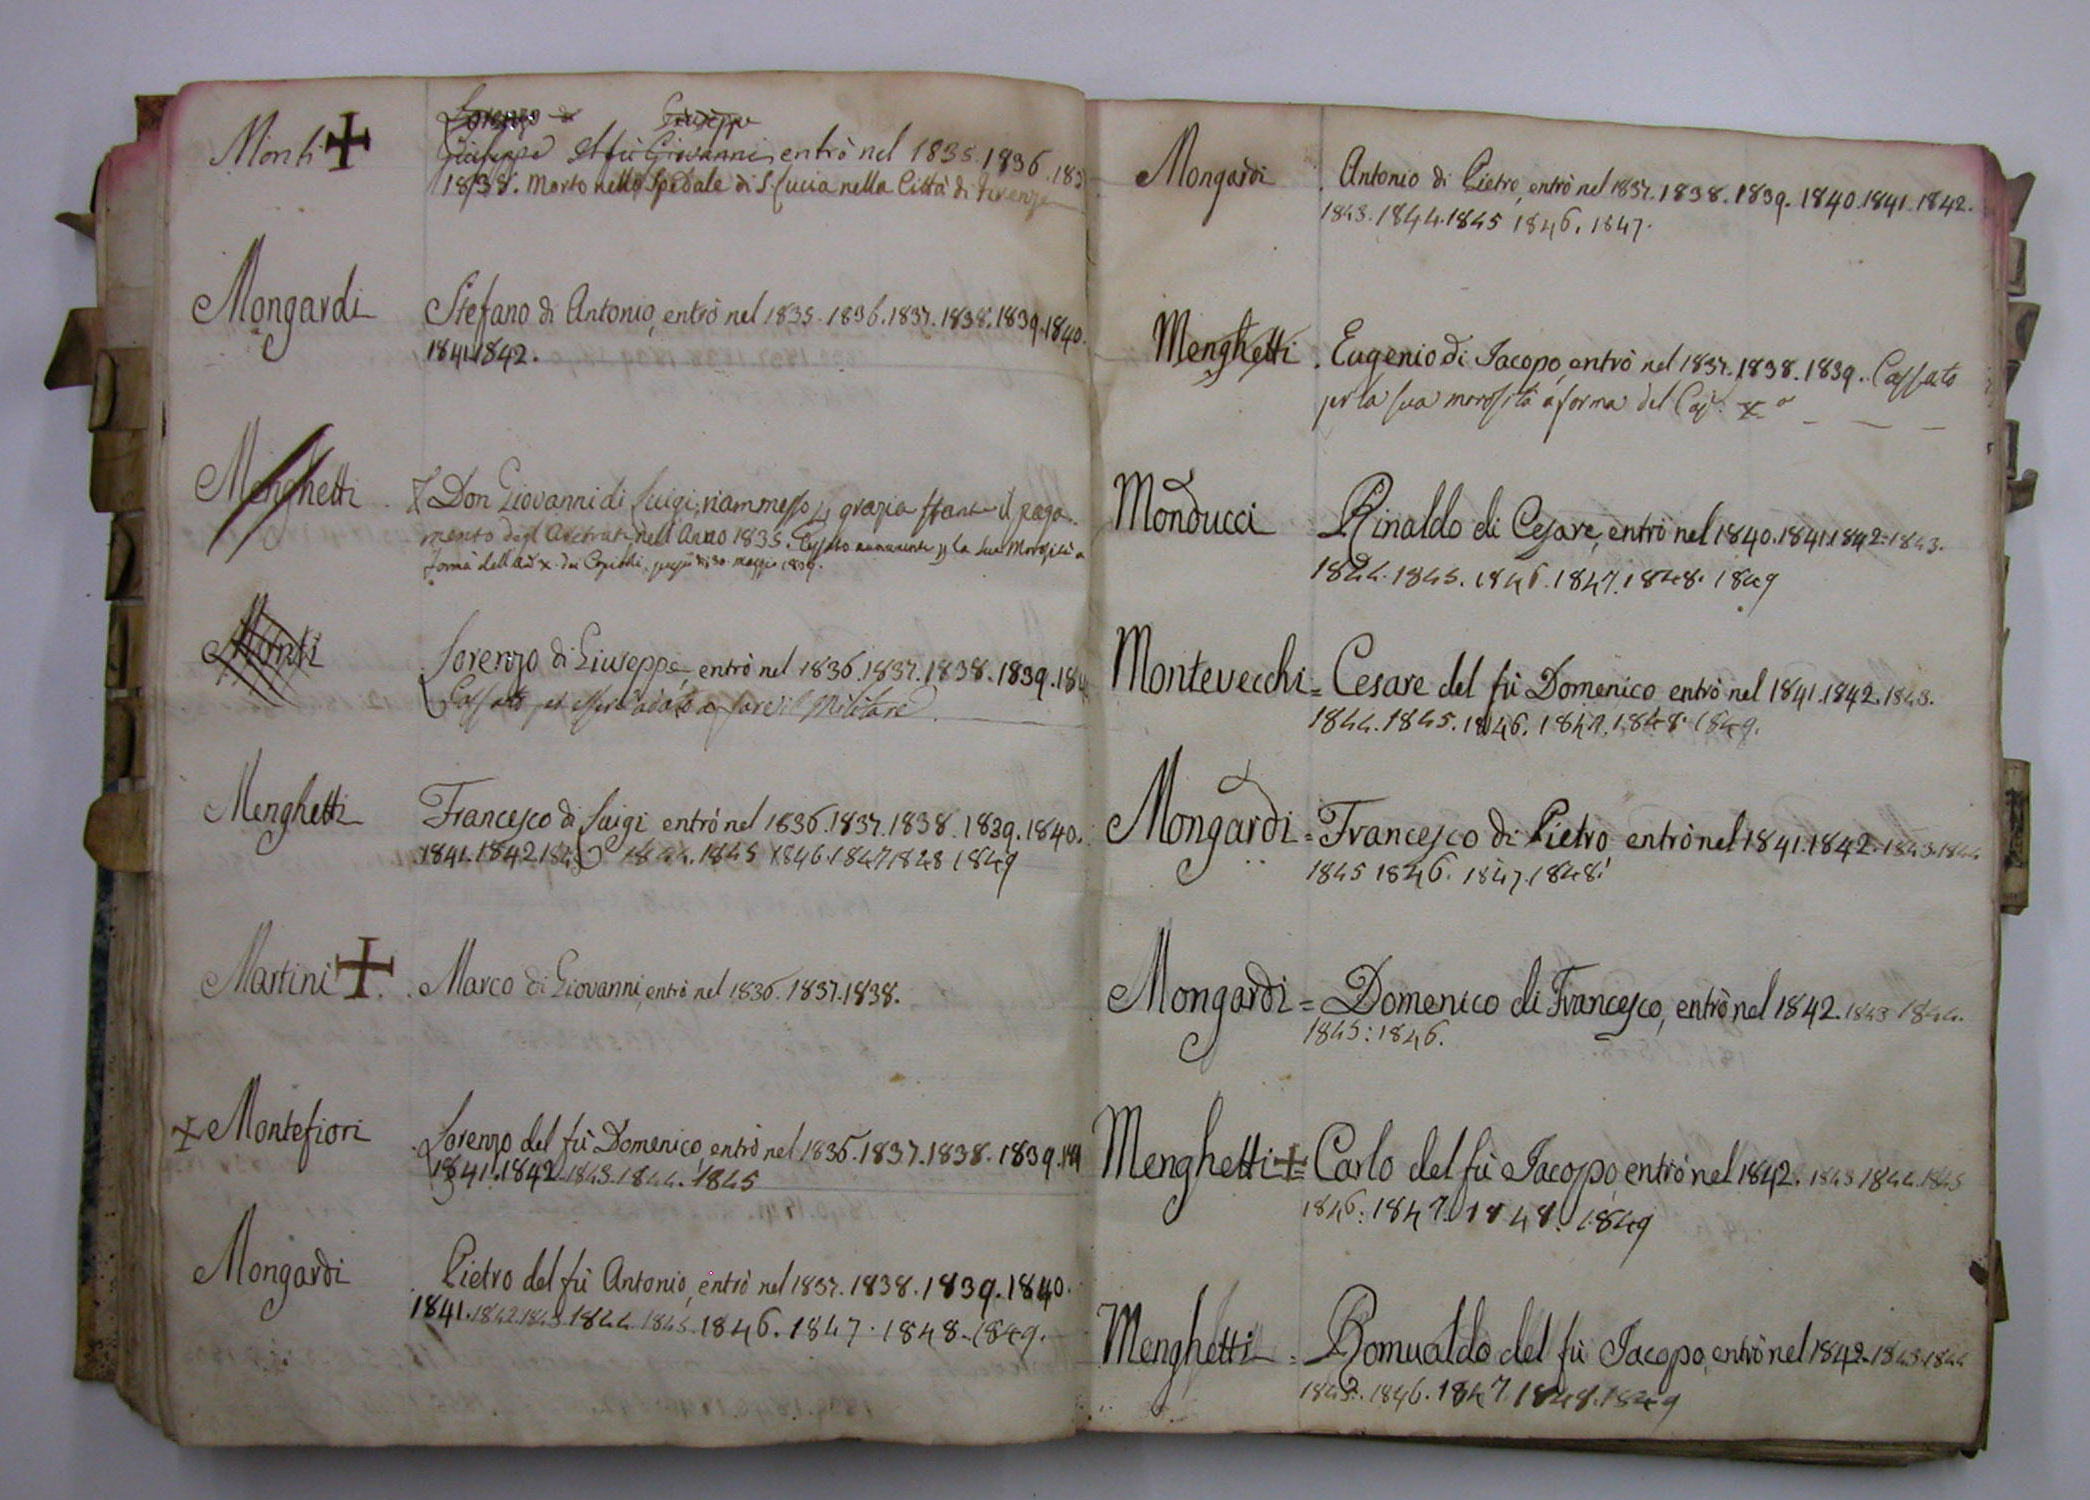 Monti ✝ Lorenzo di Giuseppe
Giuseppe del fù Giovanni, entrò nel 1835. 1836. 183
1838. Morto nello Spedale di S. Lucia nella Città di Firenze
Mongardi Stefano di Antonio, entrò nel 1835. 1836. 1837. 1838. 1839. 1840.
1841. 1842.
Menghetti Don Giovanni di Luigi, riammesso p grazia stante il paga
mento degl'Arretrati nell'Anno 1835. Cassato nuovamente p la sua Morosità a
forma dell'Art X. dei Capitoli, maggio 1839.
Monti Lorenzo di Giuseppe, entrò nel 1836. 1837. 1838. 1839. 184
Cassato per esser adato a fare il Militare
Menghetti Francesco di Luigi entrò nel 1836. 1837. 1838. 1839. 1840.
1841. 1842. 1843 1844. 1845 1846. 1847. 1848 1849
Martini ✝ . Marco di Giovanni, entrò nel 1836. 1837. 1838.
+ Montefiori Lorenzo del fù Domenico, entrò nel 1836. 1837. 1838. 1839. 184
1841. 1842. 1843. 1844. 1845
Mongardi Pietro del fù Antonio, entrò nel 1837. 1838. 1839. 1840.
1841. 1842. 1843. 1844. 1845. 1846. 1847. 1848. 1849.
Mongardi . Antonio di Pietro, entrò nel 1837. 1838. 1839. 1840. 1841. 1842.
1843. 1844. 1845 1846. 1847.
Menghetti . Eugenio di Jacopo, entrò nel 1837. 1838. 1839. Cassato
per la sua morosità a forma del Cap. X.º
Monducci Rinaldo di Cesare, entrò nel 1840. 1841. 1842. 1843.
1844. 1845. 1846. 1847. 1848. 1849
Montevecchi = Cesare del fù Domenico entrò nel 1841. 1842. 1843.
1844. 1845. 1846. 1847. 1848. 1849.
Mongardi = Francesco di Pietro entrò nel 1841. 1842. 1843. 1844
1845 1846. 1847. 1848.
Mongardi = Domenico di Francesco, entrò nel 1842. 1843 1844.
1845: 1846.
Menghetti + = Carlo del fù Jacopo, entrò nel 1842. 1843 1844. 1845
1846. 1847. 1848. 1849
Menghetti = Romualdo del fù Jacopo, entrò nel 1842. 1843. 1844
1845. 1846. 1847. 1848. 1849